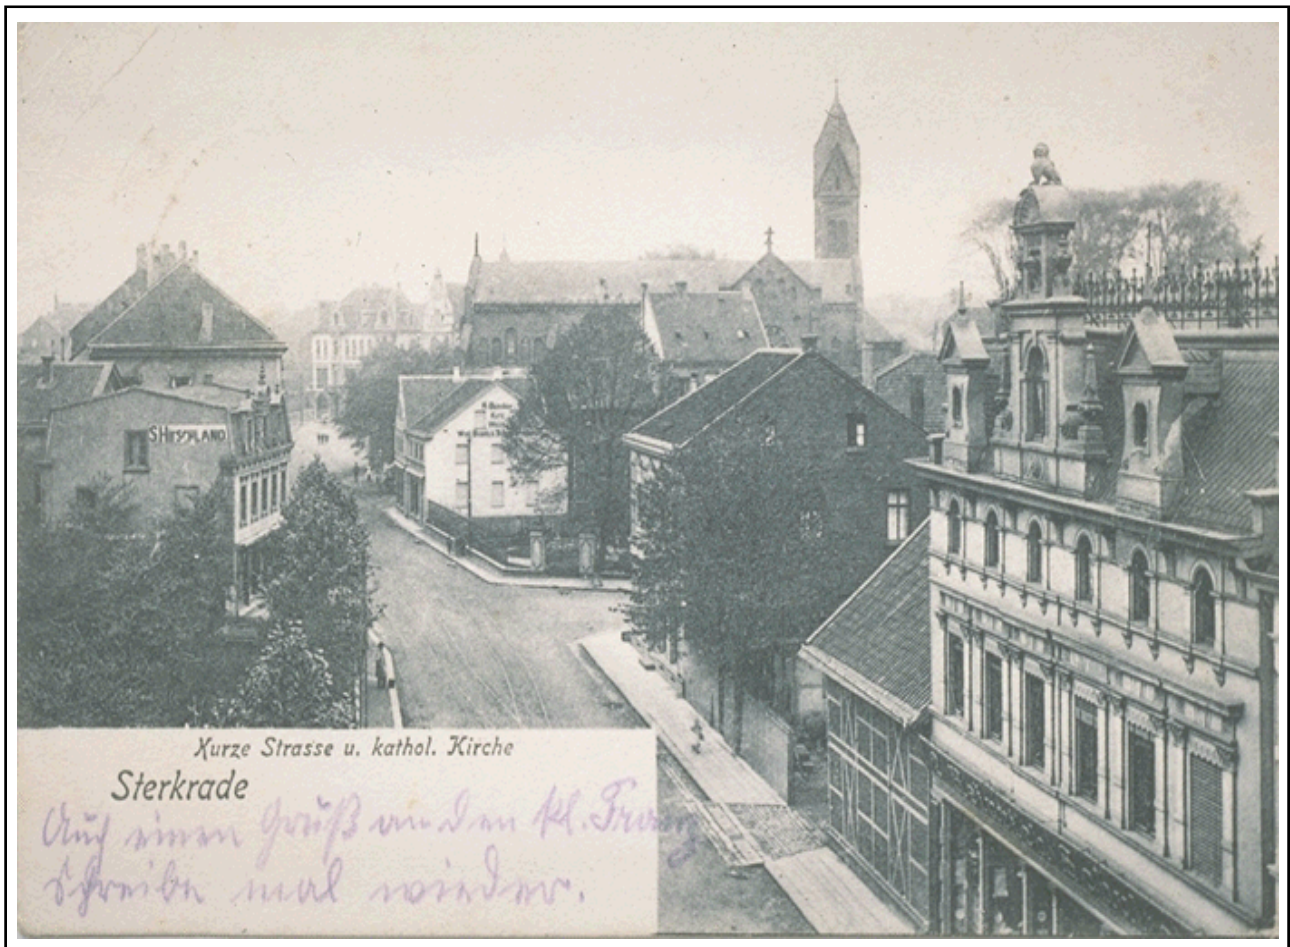 S.HIRSCHLAND
Kurze Strasse u. kathol. Kirche
Sterkrade
Auch einen Gruß an den kl. Franz
Schreibe mal wieder.